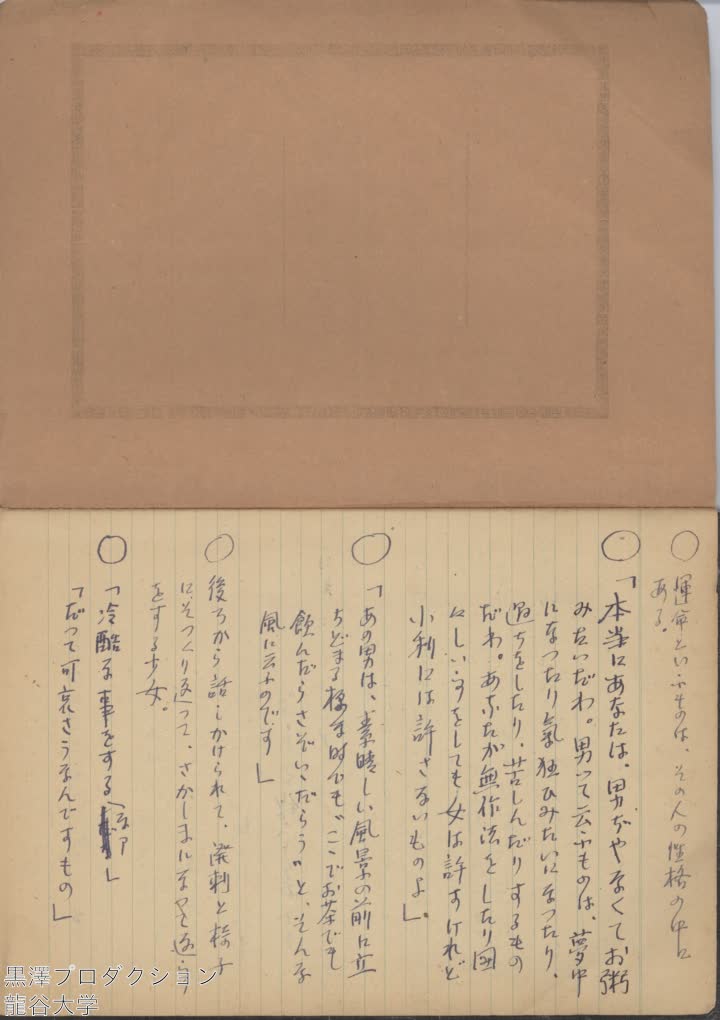 ○ 運命といふものは、その人の性格の中に
ある。
○ 「本当にあなたは、男ぢやなくてお粥
みたいだわ。男って云ふものは、夢中
になつたり氣狂ひみたいになつたり、
過ちをしたり、苦しんだりするもの
だわ。あなたが無作法をしたり
にしい事をしても女は許すけれど
小利口には許さないものよ」。
○ 「あの男は、素晴しい風景の前に立
ちどまる様な時でも〝ここでお茶でも
飲んだらさぞいゝだらう〟と、そんな
風に云ふのです」
○ 後ろから話しかけられて、溌剌と椅子
にそつくり返つて、さかしまになつて
をする少女。
○ 「冷酷な事をするなァ」
「だつて可哀さうなんですもの」
黒澤プロダクション
龍谷大学